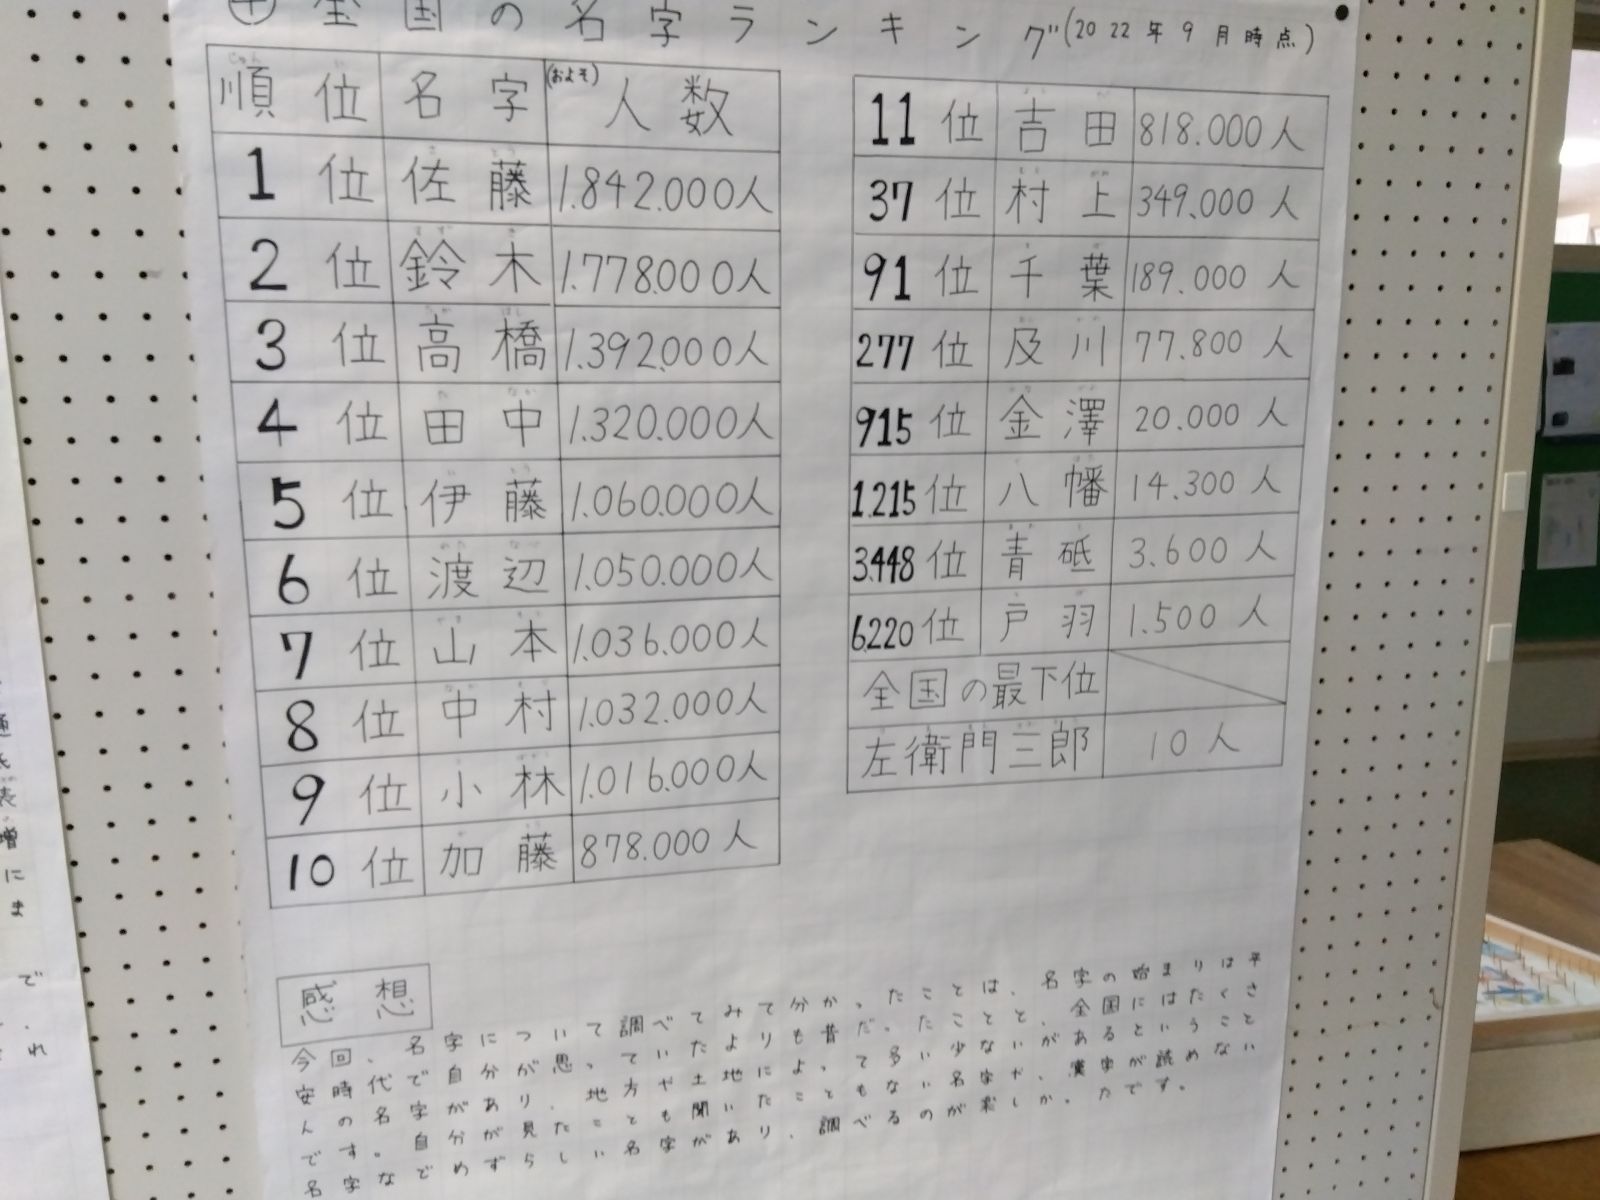 全国の名字ランキング(2022年9月時点)
順位 名字 (およそ)人数
1位 佐藤 1.842.000人
2位 鈴木 1.778.000人
3位 高橋 1.392.000人
4位 田中 1.320.000人
5位 伊藤 1.060.000人
6位 渡辺 1.050.000人
7位 山本 1.036.000人
8位 中村 1.032.000人
9位 小林 1.016.000人
10位 加藤 878.000人
11位 吉田 818.000人
37位 村上 349.000人
91位 千葉 189.000人
277位 及川 77.800人
915位 金澤 20.000人
1.215位 八幡 14.300人
3.448位 青砥 3.600人
6.220位 戸羽 1.500人
全国の最下位
左衛門三郎 10人
感想
今回、名字について調べてみて分かったことは、名字の始まりは平
安時代で自分が思っていたよりも昔だったことと、全国にはたくさ
んの名字があり、地方や土地によって多い少ないがあるということ
です。自分が見たことも聞いたこともない名字や、漢字が読めない
名字などめずらしい名字があり、調べるのが楽しかったです。